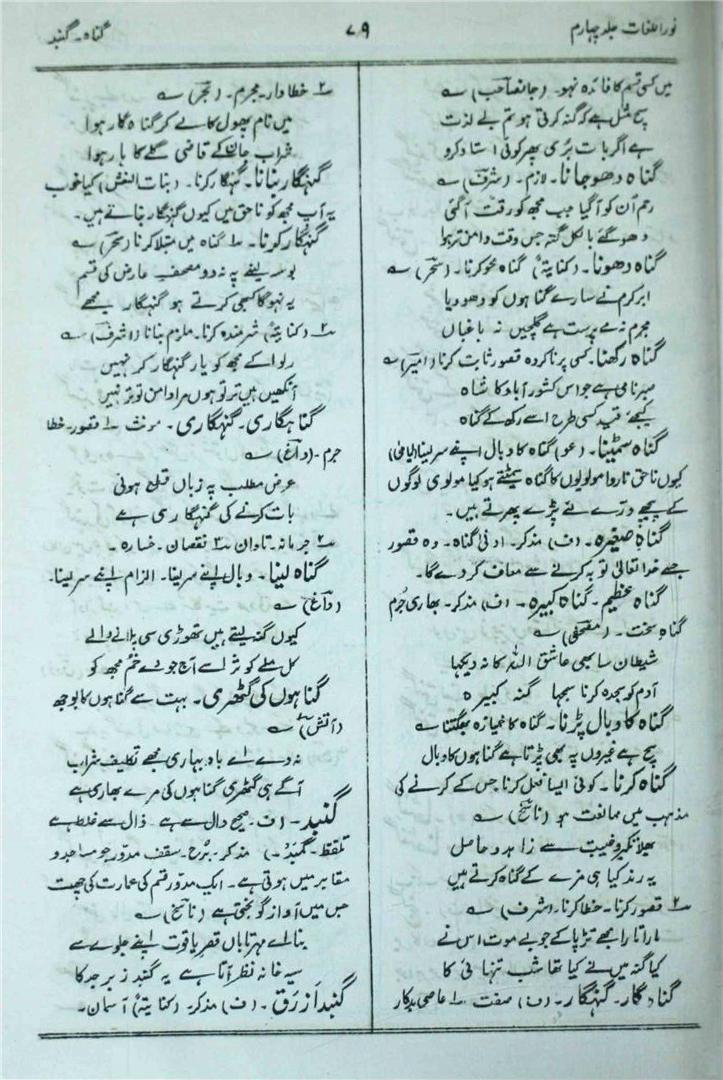 نوراللغات جلد چہارم
۷۹
گناہ۔ گنبد
میں کسی قسم کا فائدہ نہو۔ (جانصاحب) ؎
سچ مثل ہے کہ گنہ کرتی ہو تم بے لذت
ہے اگر بات بُری پھر کوئی استاد کرو
گناہ دھوجانا۔ لازم۔ (شرف) ؎
رحم اُن کو آگیا جب مجھ کو رقت آگئی
دھو گئے بالکل گنہ جس وقت دامن تر ہوا
گناہ دھونا۔ (کنایۃً) گناہ محو کرنا۔ (سحر) ؎
ابر کرم نے سارے گناہوں کو دھو دیا
مجرم نہ مے پرست ہے گلچیں نہ باغباں
گناہ رکھنا۔ کسی پر ناکردہ قصور ثابت کرنا (امیر) ؎
مہر نامی ہے جو اس کشور آباد کا شاہ
کیجئے قید کسی طرح اسے رکھ کے گناہ
گناہ سمیٹنا۔ (عو) گناہ کا وبال اپنے سر لینا (ایامیٰ)
کیوں ناحق ناروا مولویوں کا گناہ سمیٹتے ہو کیا مولوی لوگوں
کے پیچھے دُرّے لئے پڑے پھرتے ہیں۔
گناہ صغیرہ۔ (ف) مذکر۔ ادنیٰ گناہ۔ وہ قصور
جسے خدا تعالیٰ توبہ کرنے سے معاف کر دے گا۔
گناہ عظیم۔ گناہ کبیرہ۔ (ف) مذکر۔ بھاری جُرم
گناہ سخت۔ (مصحفی) ؎
شیطان سا بھی عاشق اللہ کا نہ دیکھا
آدم کو سجدہ کرنا سمجھا گنہ کبیرہ
گناہ کا وبال پڑنا۔ گناہ کا خمیازہ بھگتنا ؎
سچ ہے غیروں پہ بھی پڑتا ہے گناہوں کا وبال
گناہ کرنا۔ کوئی ایسا فعل کرنا جس کے کرنے کی
مذہب میں ممانعت ہو (ناسخ) ؎
بھلا تکبر و غیبت سے زاہدو حاصل
یہ رند کیا ہی مزے کے گناہ کرتے ہیں
۲ قصور کرنا۔ خطا کرنا۔ (شرف) ؎
مارا تارا مجھے تڑپا کے جو بے موت اس نے
کیا گنہ میں نے کیا تھا شب تنہائی کا
گناہگار۔ گنہگار۔ (ف) صفت ۱ عاصی بدکار
۲ خطاوار۔ مجرم۔ (بحر) ؎
میں نام بھول کا لے کر گناہ گار ہوا
شراب جان کے قاضی گلے کا ہار ہوا
گنہگار بنانا۔ گنہگار کرنا۔ (بنات النعش) کیا خوب
یہ آپ مجھ کو ناحق میں کیوں گنہگار بناتے ہیں۔
گنہگار کرنا۔ ۱ گناہ میں مبتلا کرنا (بحر) ؎
بوسہ لینے پہ نہ دو مصحف عارض کی قسم
یہ نہو گا کبھی کرتے ہو گنہگار مجھے
۲ (کنایۃً) شرمندہ کرنا۔ ملزم بنانا (شرف) ؎
رلوا کے مجھ کو یار گنہگار کر نہیں
آنکھیں ہیں تر تو ہوں مرا دامن تو تر نہیں
گناہگاری۔ گنہگاری۔ مونث ۱ قصور۔ خطا
جرم۔ (داغ) ؎
عرض مطلب پہ زباں قطع ہوئی
بات کرنے کی گنہگاری ہے
۲ جرمانہ۔ تاوان ۳ نقصان۔ خسارہ۔
گناہ لینا۔ وبال اپنے سر لینا۔ الزام اپنے سر لینا۔
(داغ) ؎
کیوں گنہ لیتے ہیں تھوڑی سی پلانے والے
کل ملے کوثر اسے آج جو دے خُم مجھ کو
گناہوں کی گٹھری۔ بہت سے گناہوں کا بوجھ
(آتش) ؎
نہ دے اے باد بہاری مجھے تکلیف شراب
آگے ہی گٹھری گناہوں کی مرے بھاری ہے
گنبد۔ (ف۔ صحیح دال سے ہے۔ ذال سے غلط ہے
تلفظ۔ گمبد۔) مذکر۔ بُرج۔ سقف مدوّر جو مساجد و
مقابر میں ہوتی ہے۔ ایک مدوّر قسم کی عمارت کی چھت
جس میں آواز گونجتی ہے (ناسخ) ؎
بنا اے مہر تاباں قصر یاقوت اپنے جلوے سے
سیہ خانہ نظر آتا ہے یہ گنبد زبرجد کا
گنبد اَزرَق۔ (ف) مذکر۔ (کنایۃً) آسمان۔